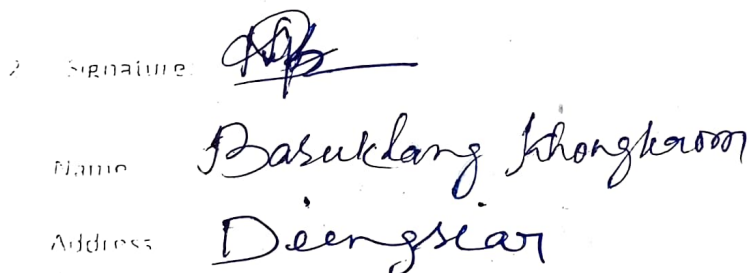 2 Signature
Name Basuklang Khongkrom
Address Diengsiar